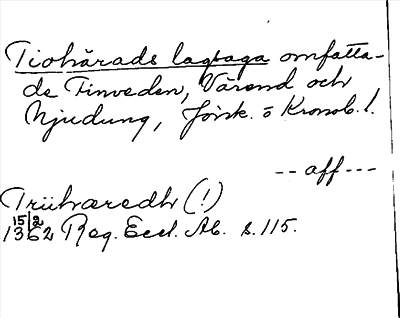 Tiohärads lagsaga omfatta-
de Finveden, Värend och
Njudung, Jönk. o Kronob. l.
--aff---
Triihæredh (!)
15/2
1362 Reg. Eccl. Ab. s. 115.